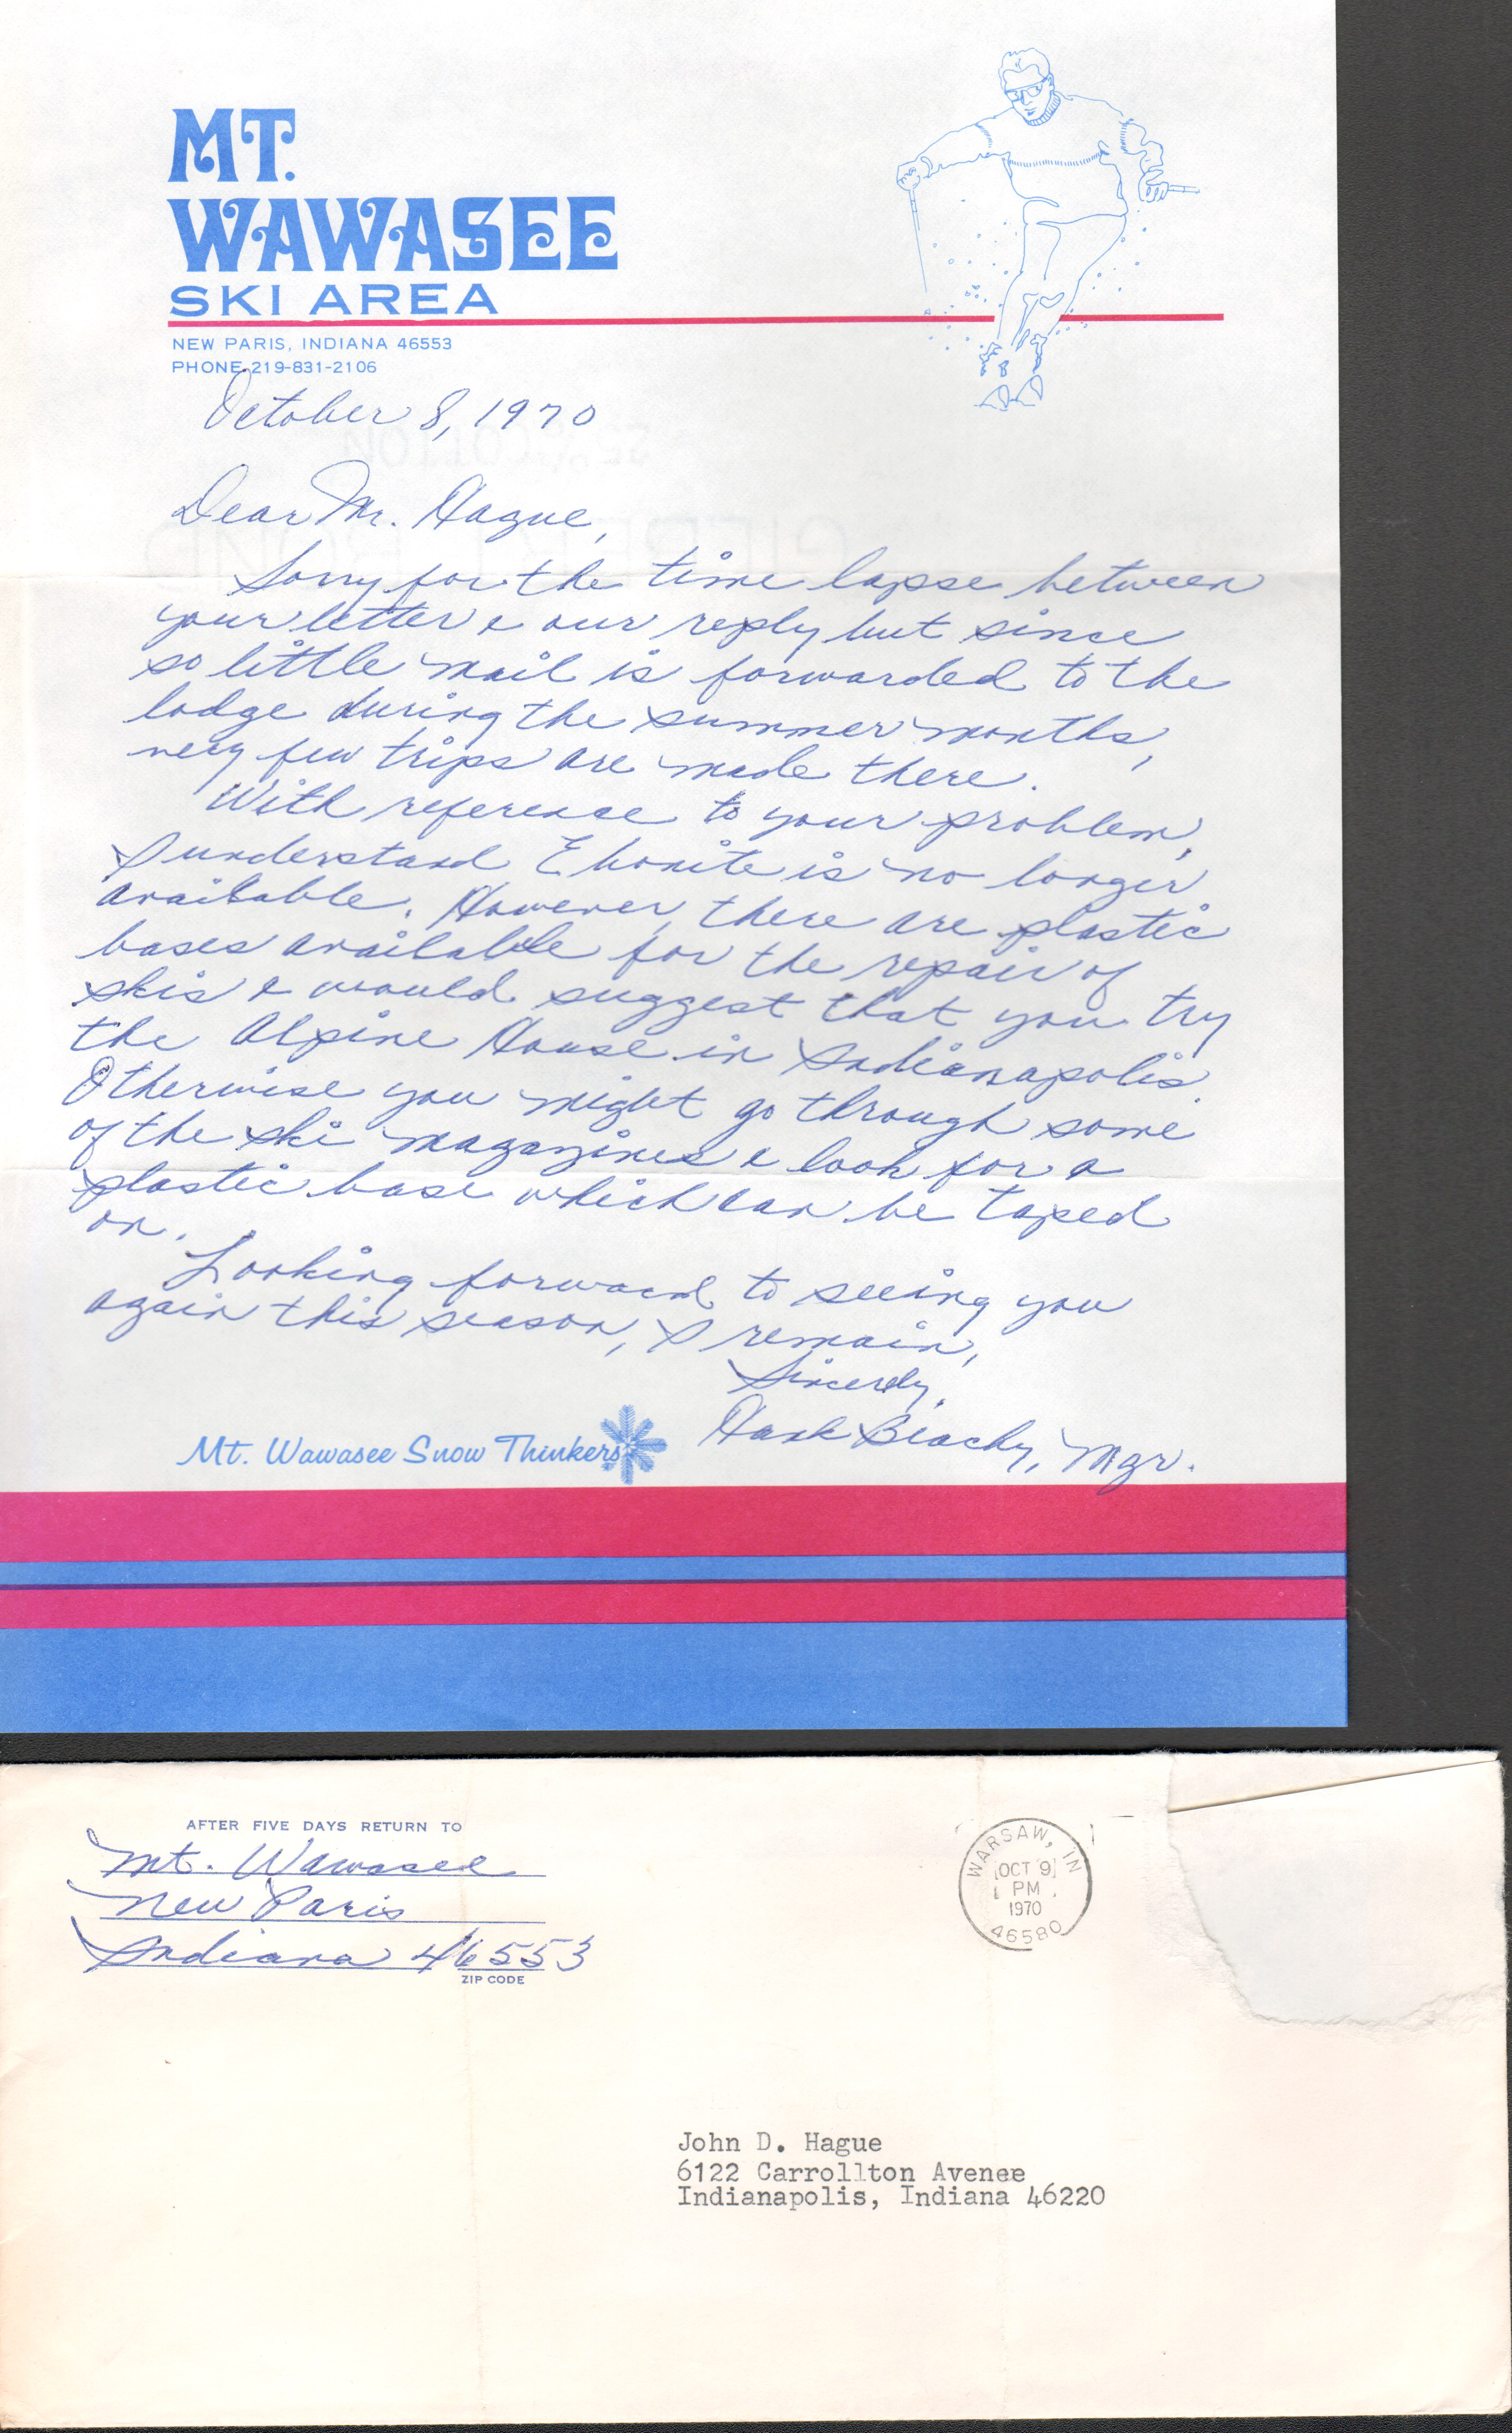 MT.
WAWASEE
SKI AREA
NEW PARIS, INDIANA 46553
PHONE 219-831-2106
October 8, 1970
Dear Mr. Hague,
Sorry for the time lapse between
your letter & our reply but since
so little mail is forwarded to the
lodge during the summer months,
very few trips are made there.
With reference to your problem,
I understand Ebonite is no longer
available. However, there are plastic
bases available for the repair of
skis & would suggest that you try
the Alpine House in Indianapolis.
Otherwise you might go through some
of the ski magazines & look for a
plastic base which can be taped
on.
Looking forward to seeing you
again this season, I remain,
Sincerely,
Hank Beachy, Mgr.
Mt. Wawasee Snow Thinkers
AFTER FIVE DAYS RETURN TO
Mt. Wawasee
New Paris
Indiana 46553
ZIP CODE
WARSAW, IN
OCT 9
PM
1970
46580
John D. Hague
6122 Carrollton Avenee
Indianapolis, Indiana 46220